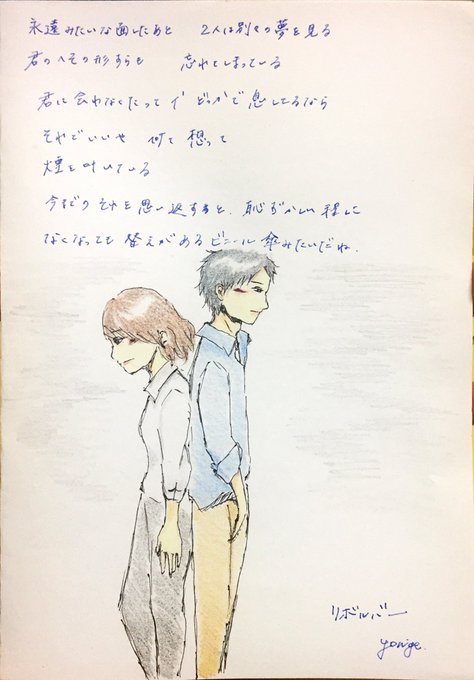 永遠みたいな面したあと 2人は別々の夢を見る
君のへその形すらも 忘れてしまっている
君に会わなくたって どっかで息してるなら
それでいいや 何て 想って
煙を吐いている
今までのそれを思い返すと、恥ずかしい程に
なくなっても替えがあるビニール傘みたいだね.
リボルバー
yonige.